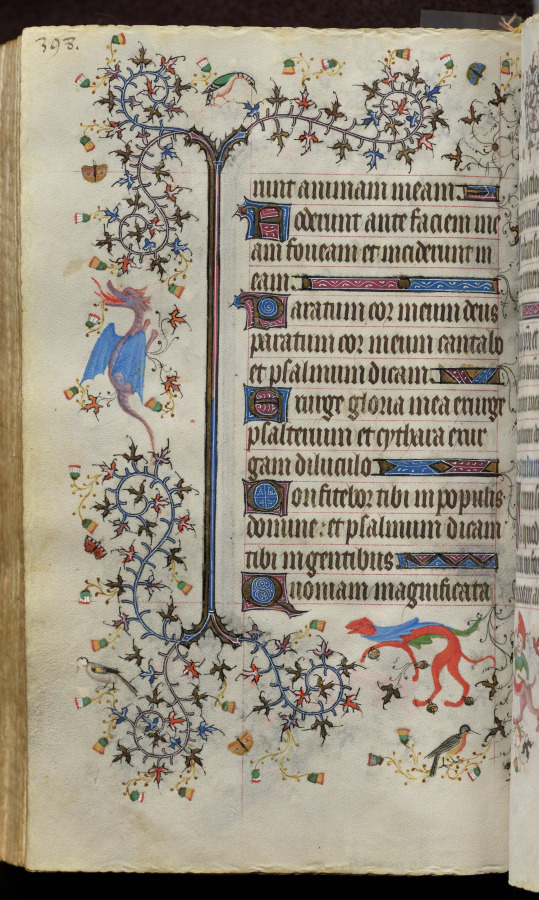 393.
runt animam meam
Foderunt ante faciem me
am foueam et inciderunt in
eam.
Paratum cor meum deus
paratum cor meum cantabo
et psalmum dicam
Exurge gloria mea exurge
psalterium et cythara exur
gam diluculo
Confitebor tibi in populis
domine: et psalmum dicam
tibi in gentibus
Quoniam magnificata